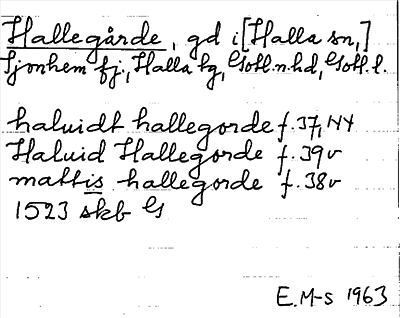 Hallegårde, gd i [Halla sn,]
Sjonhem fj., Halla tg, Gotl.n.hd, Gotl.l.
haluidt hallegorde f. 37, 44
Haluid Hallegorde f. 39v
mattis hallegorde f. 38v
1523 skb G
E.M-s 1963